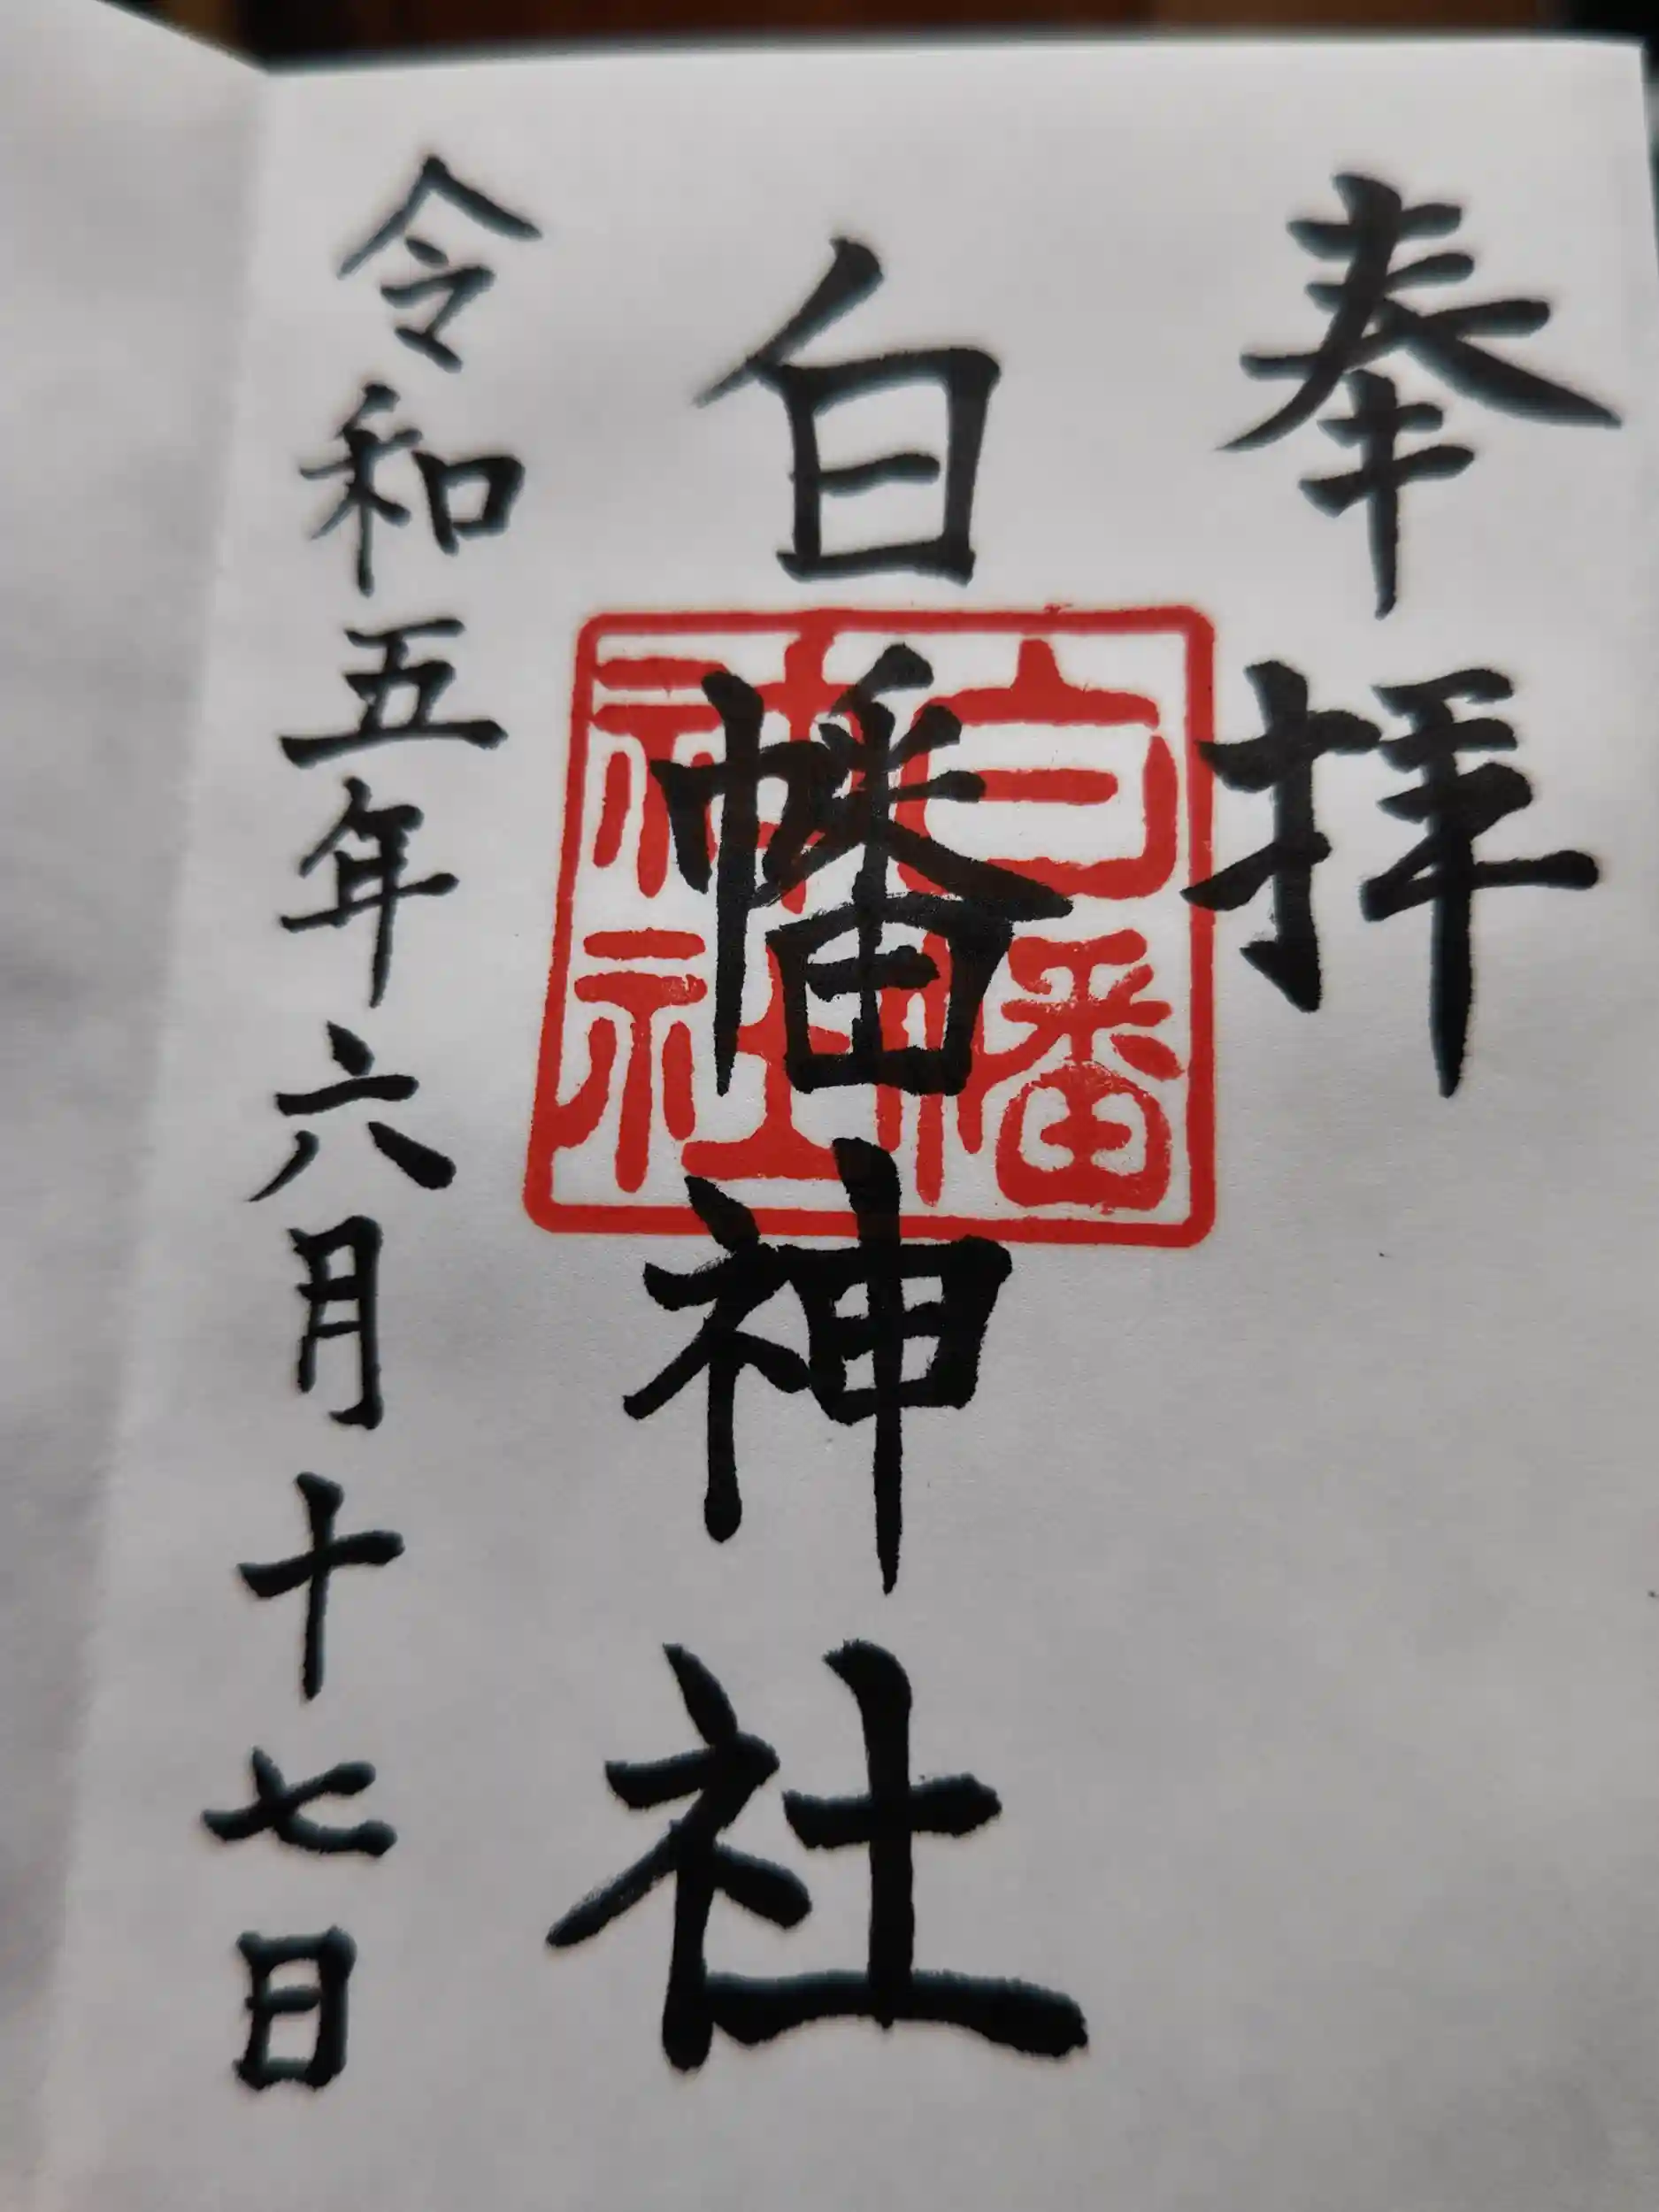 奉拝
白幡神社
白幡神社
令和五年六月十七日